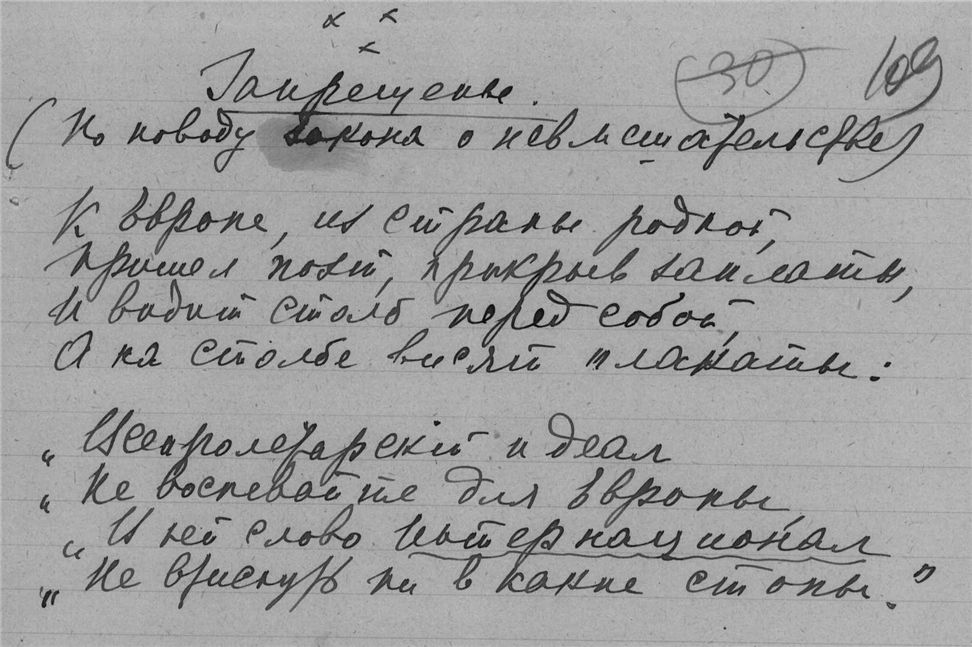 × × ×
30 109
Запрещенье.
(По поводу закона о невмешательстве)
К Европе, из страны родной,
Пришел поэт, прикрыв заплаты,
И видит столб перед собой,
А на столбе висят плакаты:
„Всепролетарский идеал
„Не воспевайте для Европы
„И ей слово интернационал
„Не втиснуть ни в какие стопы."